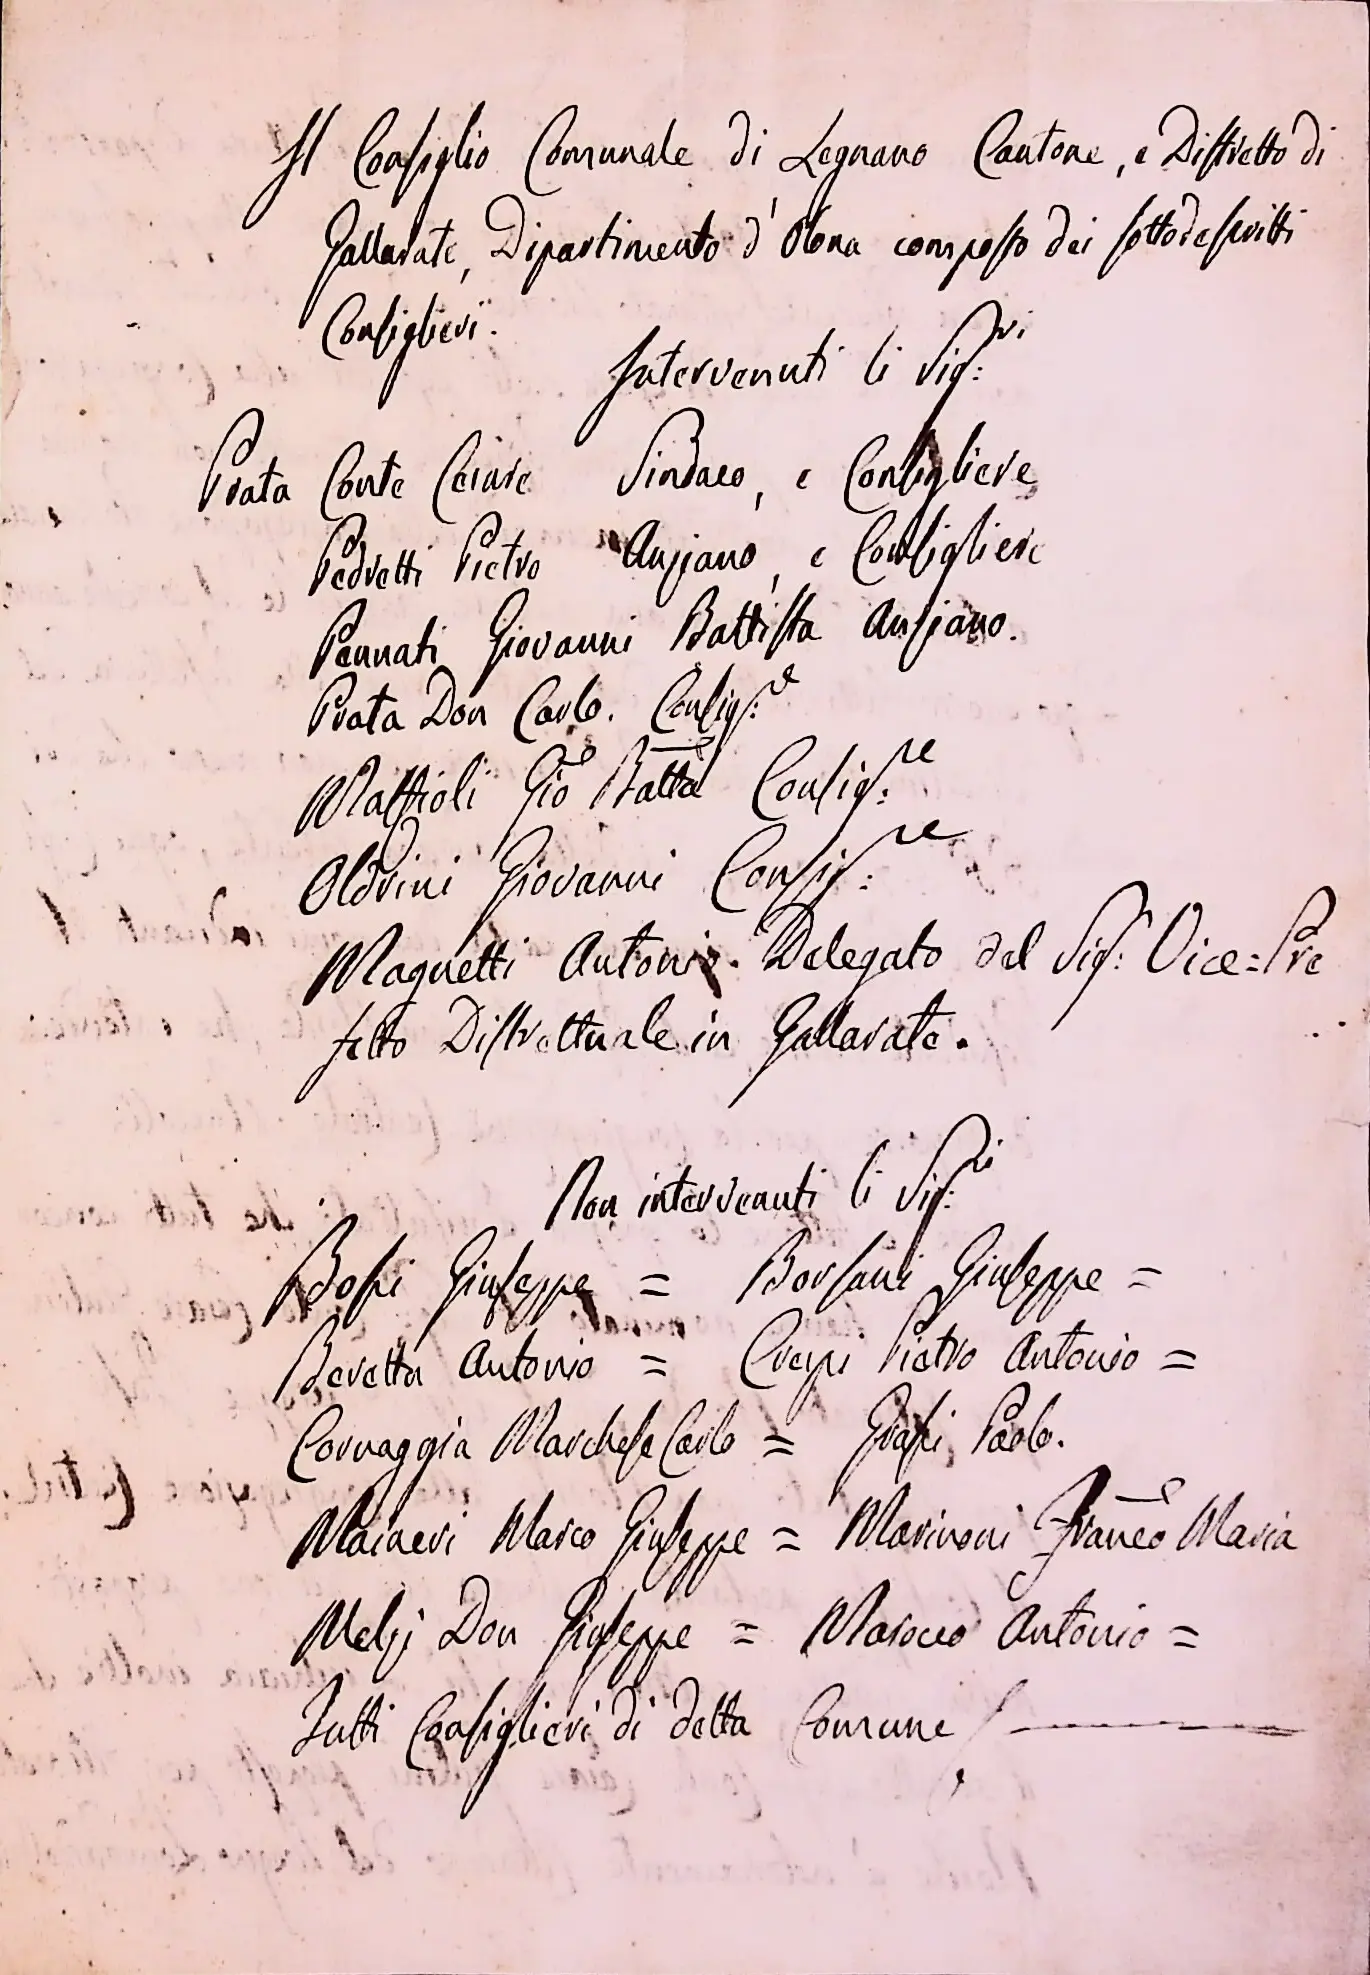 Il Consiglio Comunale di Legnano Cantone, e Distretto di
Gallarate, Dipartimento d'Olona composto dei sottodescritti
Consiglieri.
Intervenuti li Sig:ri
Prata Conte Cesare Sindaco, e Consigliere
Pedretti Pietro Anziano, e Consigliere
Pennati Giovanni Battista Anziano.
Prata Don Carlo. Consig:e
Gio Batta Consig:re
Oldrini Giovanni Consig:re
Magnetti Antonio. Delegato del Sig: Vice=Pre
fetto Distrettuale in Gallarate.
Non intervenuti li Sig:ri
Bossi Giuseppe = Borsani Giuseppe =
Beretta Antonio = Crespi Pietro Antonio =
Cornaggia Marchese Carlo = Grassi Paolo.
Maineri Marco Giuseppe = Marinoni Franco Maria
Melzj Don Giuseppe = Marocco Antonio =
Tutti Consiglieri di detta Comune